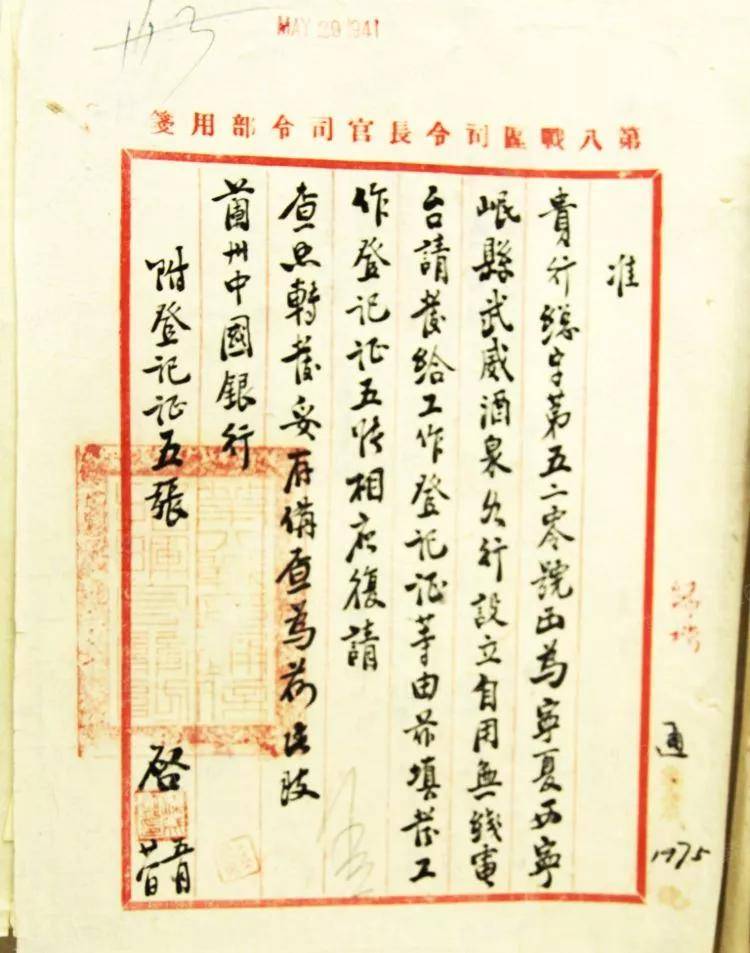 MAY 29 1941
第八戰區司令長官司令部用箋
准
貴行總字第五二零號函為寧夏西寧
岷縣武威酒泉各行設立自用無綫電
台請發給工作登記证等由茲填發工
作登記证五張相应復請
查照轉發妥存備查為荷此致
蘭州中國銀行
附登記证五張
啓
五月
歸檔
通